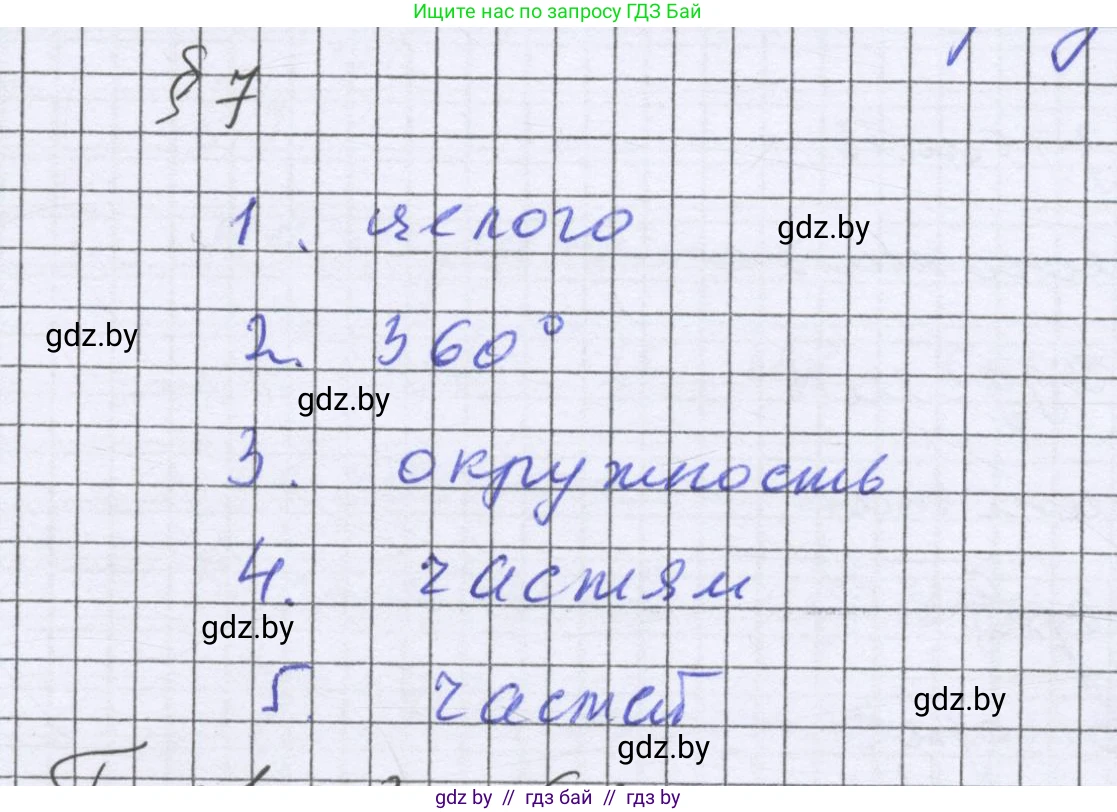 Ищите нас по запросу ГДЗ Бай
§ 7
1. целого
gdz.by
2. 360°
gdz.by
gdz.by
3. окружность
4. частям
gdz.by
5. частей
gdz.by
gdz.by
gdz by // гдз бай // гдз by